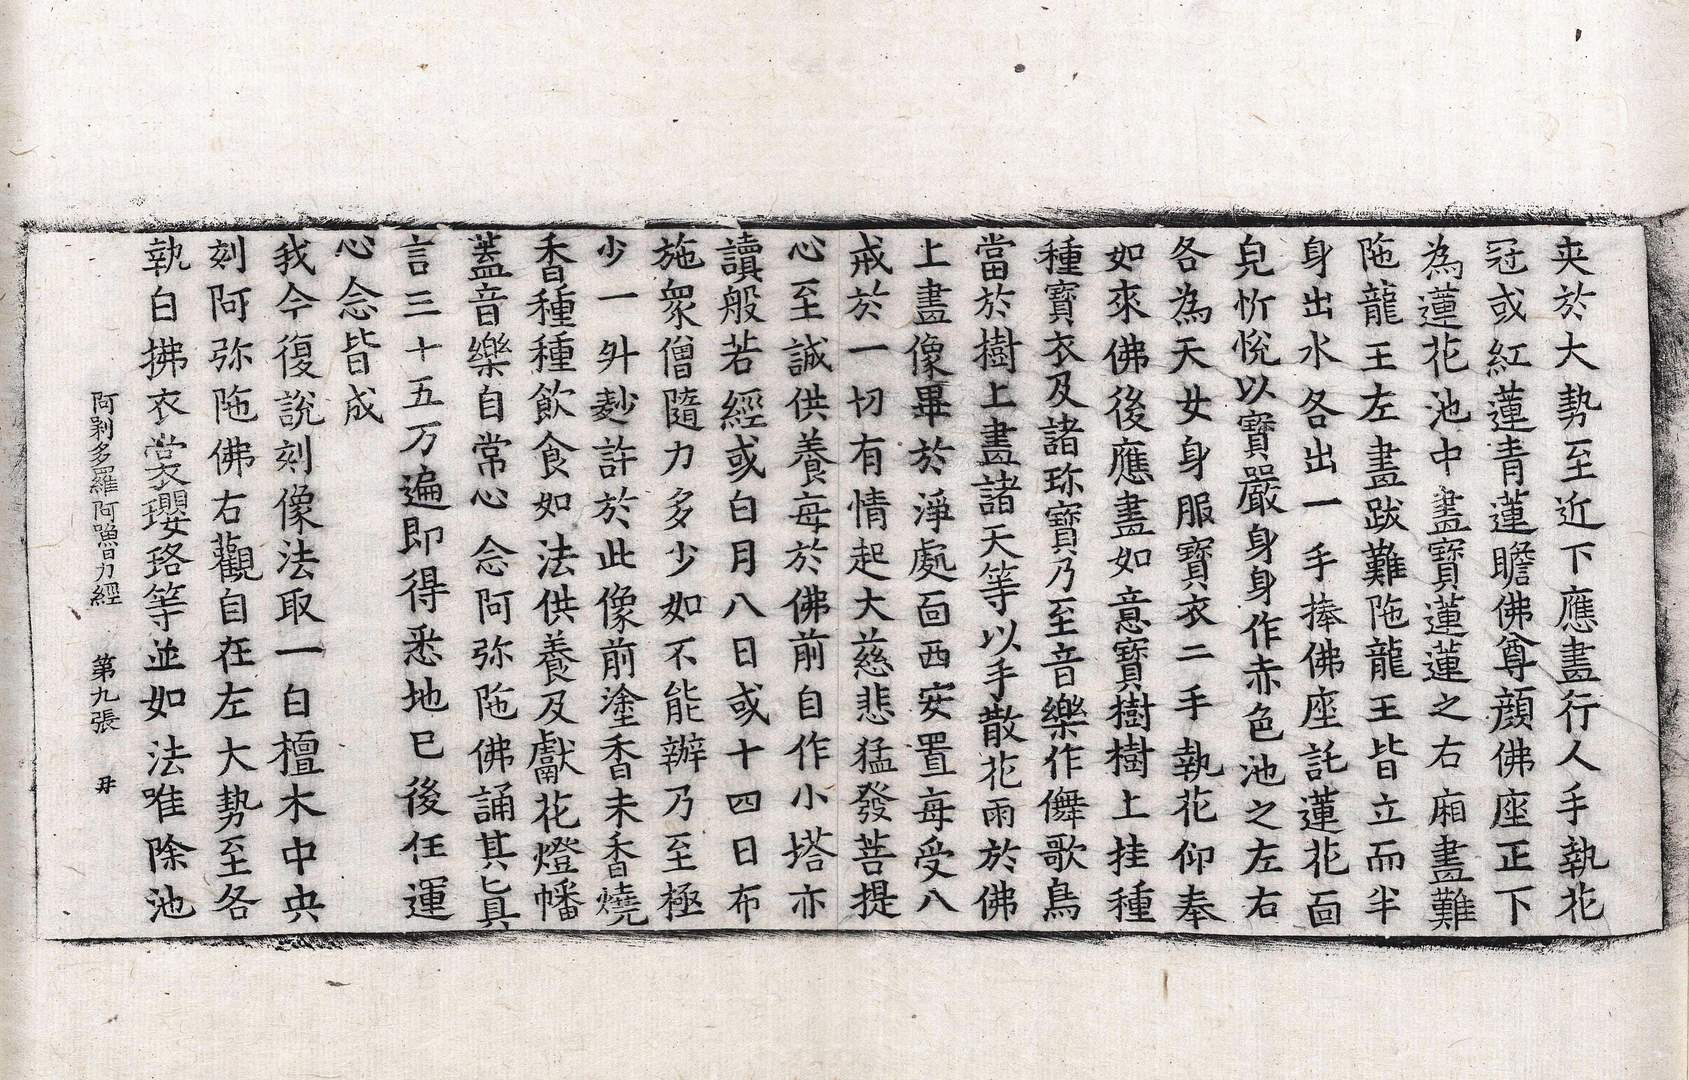 夾於大勢至近下應畫行人手執花
冠或紅蓮青蓮瞻佛尊顔佛座正下
為蓮花池中畫寶蓮蓮之右廂畫難
陁龍王左畫跋難陁龍王皆立而半
身出水各出一手捧佛座託蓮花面
皃忻悅以寶嚴身身作赤色池之左右
各為天女身服寶衣二手執花仰奉
如來佛後應畫如意寶樹樹上挂種
種寶衣及諸珎寶乃至音樂作儛歌鳥
當於樹上畫諸天等以手散花雨於佛
上畫像畢於淨處面西安置每受八
戒於一切有情起大慈悲猛發菩提
心至誠供養每於佛前自作小塔亦
讀般若經或白月八日或十四日布
施衆僧隨力多少如不能辦乃至極
少一升麨許於此像前塗香末香燒
香種種飲食如法供養及獻花燈幡
蓋音樂自常心念阿弥陁佛誦其真
言三十五万遍即得悉地已後任運
心念皆成
我今復說刻像法取一白檀木中央
刻阿弥陁佛右觀自在左大勢至各
執白拂衣裳瓔珞等並如法唯除池
阿剌多羅阿嚕力經 第九張